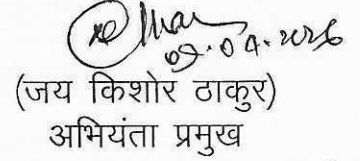 09.04.2026
(जय किशोर ठाकुर)
अभियंता प्रमुख